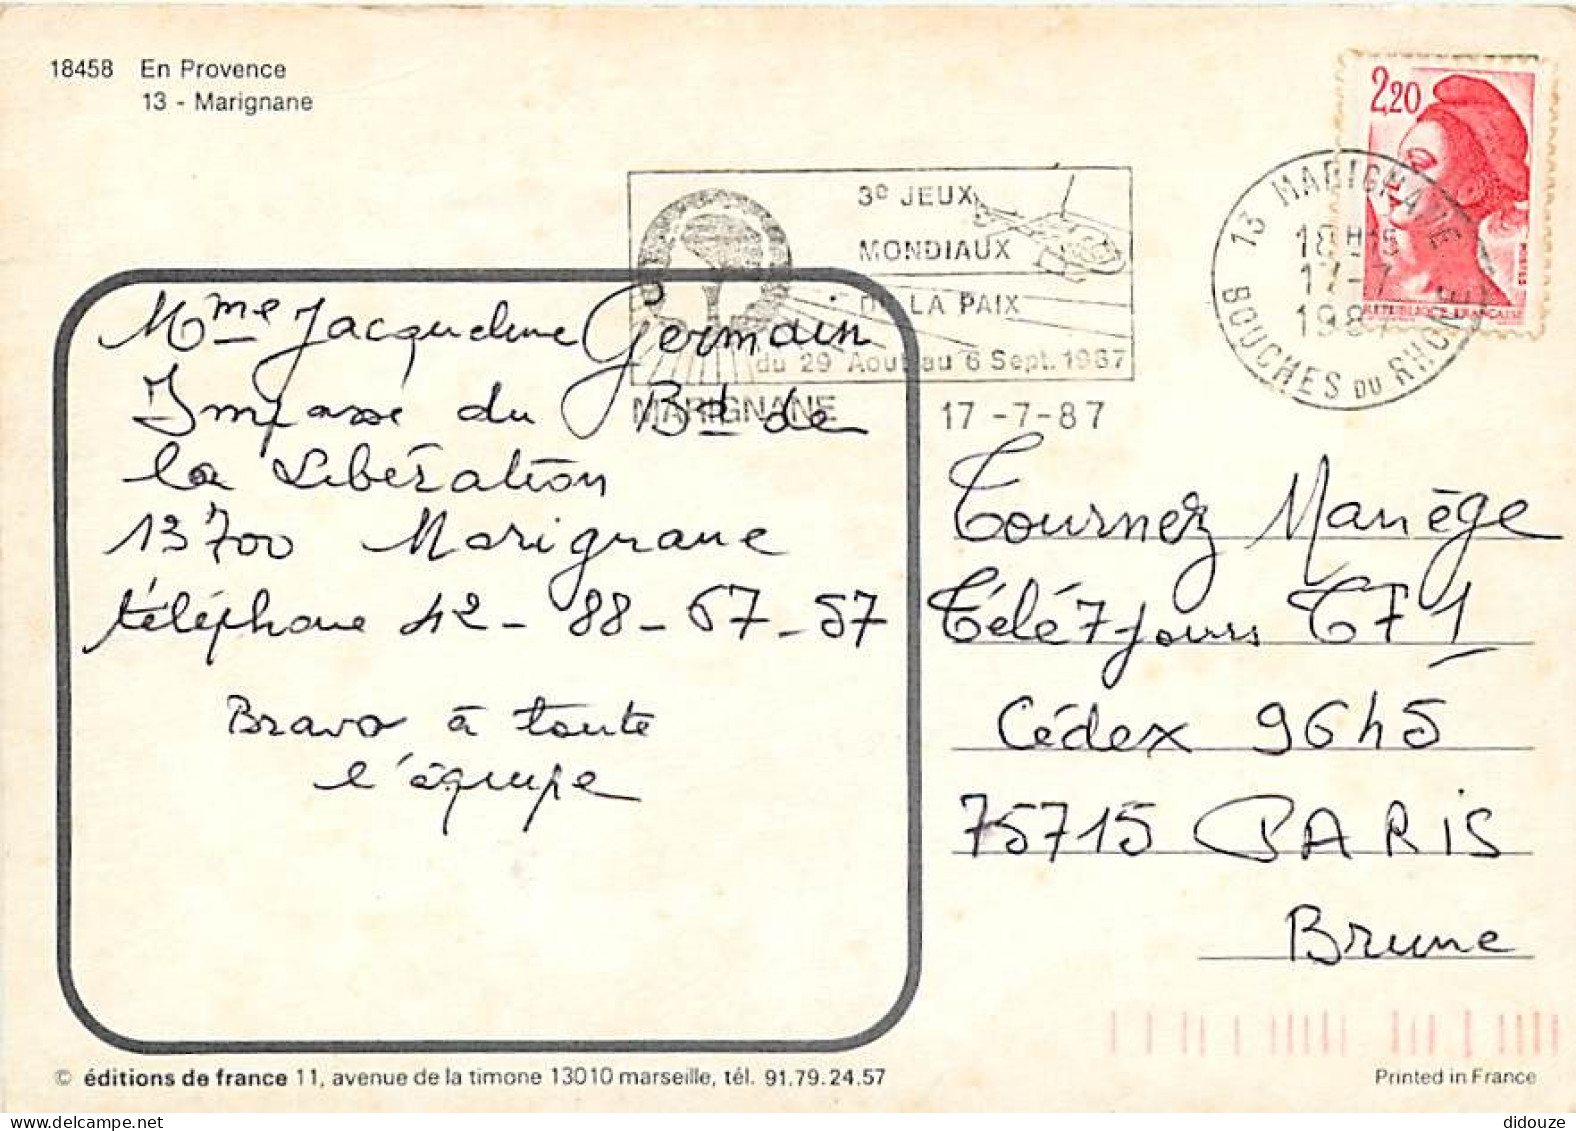 18458 En Provence
13 - Marignane
2,20
POSTES
REPUBLIQUE FRANÇAISE
13 MARIGNANE
18H15
17-7
1987
BOUCHES DU RHONE
3e JEUX
MONDIAUX
DE LA PAIX
du 29 Aout au 6 Sept. 1987
MARIGNANE
17-7-87
Mme Jacqueline Germain
Impasse du Bd de
la Libération
13700 Marignane
téléphone 42-88-67-57
Bravo à toute
l'équipe
Tournez Manège
Télé 7 jours TF1
Cédex 9645
75715 PARIS
Brune
© éditions de france 11, avenue de la timone 13010 marseille, tél. 91.79.24.57
Printed in France
didouze